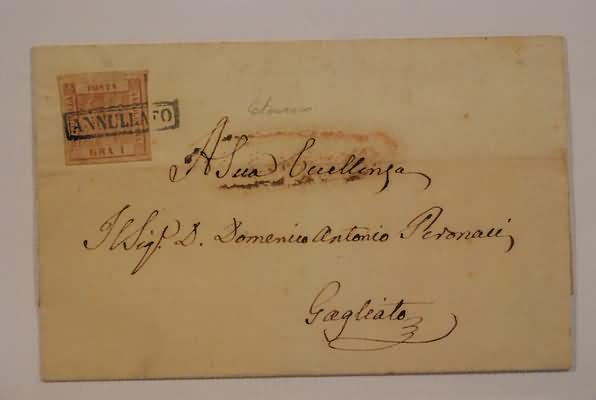 POSTA
ANNULLATO
GRA 1
A Sua Eccellenza
Il Sigr. D. Domenico Antonio Peronaci
Gagliato